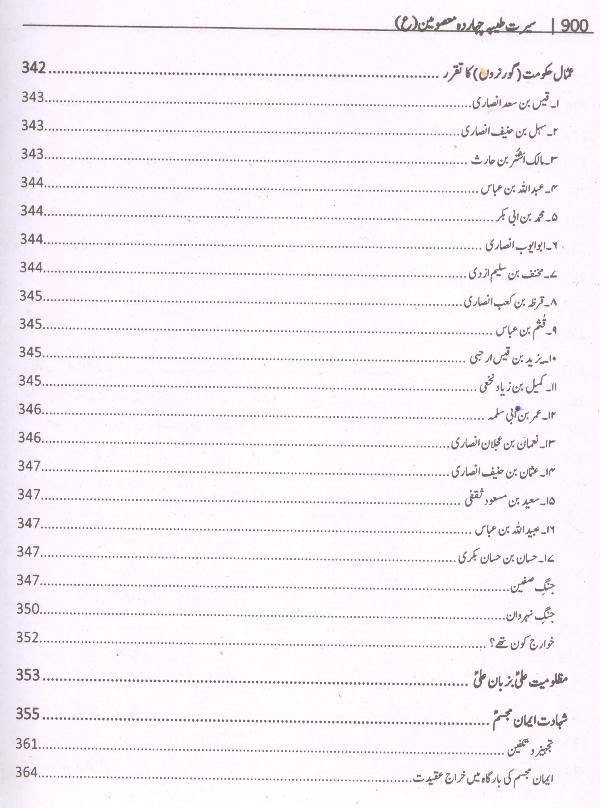 900 | سیرت طیبہ چہاردہ معصومین (ع)
عمال حکومت (گورنروں) کا تقرر ........ 342
۱۔ قیس بن سعد انصاری ........ 343
۲۔ سہل بن حنیف انصاری ........ 343
۳۔ مالک اشتر بن حارث ........ 343
۴۔ عبداللہ بن عباس ........ 344
۵۔ محمد بن ابی بکر ........ 344
۶۔ ابو ایوب انصاری ........ 344
۷۔ مخنف بن سلیم ازدی ........ 344
۸۔ قرظہ بن کعب انصاری ........ 345
۹۔ قُثم بن عباس ........ 345
۱۰۔ یزید بن قیس ارحبی ........ 345
۱۱۔ کمیل بن زیاد نخعی ........ 345
۱۲۔ عمر بن ابی سلمہ ........ 346
۱۳۔ نعمان بن عجلان انصاری ........ 346
۱۴۔ عثمان بن حنیف انصاری ........ 347
۱۵۔ سعید بن مسعود ثقفی ........ 347
۱۶۔ عبیداللہ بن عباس ........ 347
۱۷۔ حسان بن حسان بکری ........ 347
جنگِ صفین ........ 347
جنگِ نہروان ........ 350
خوارج کون تھے؟ ........ 352
مظلومیت علیؑ بزبان علیؑ ........ 353
شہادت ایمان مجسمؑ ........ 355
تجہیز و تکفین ........ 361
ایمان مجسم کی بارگاہ میں خراج عقیدت ........ 364